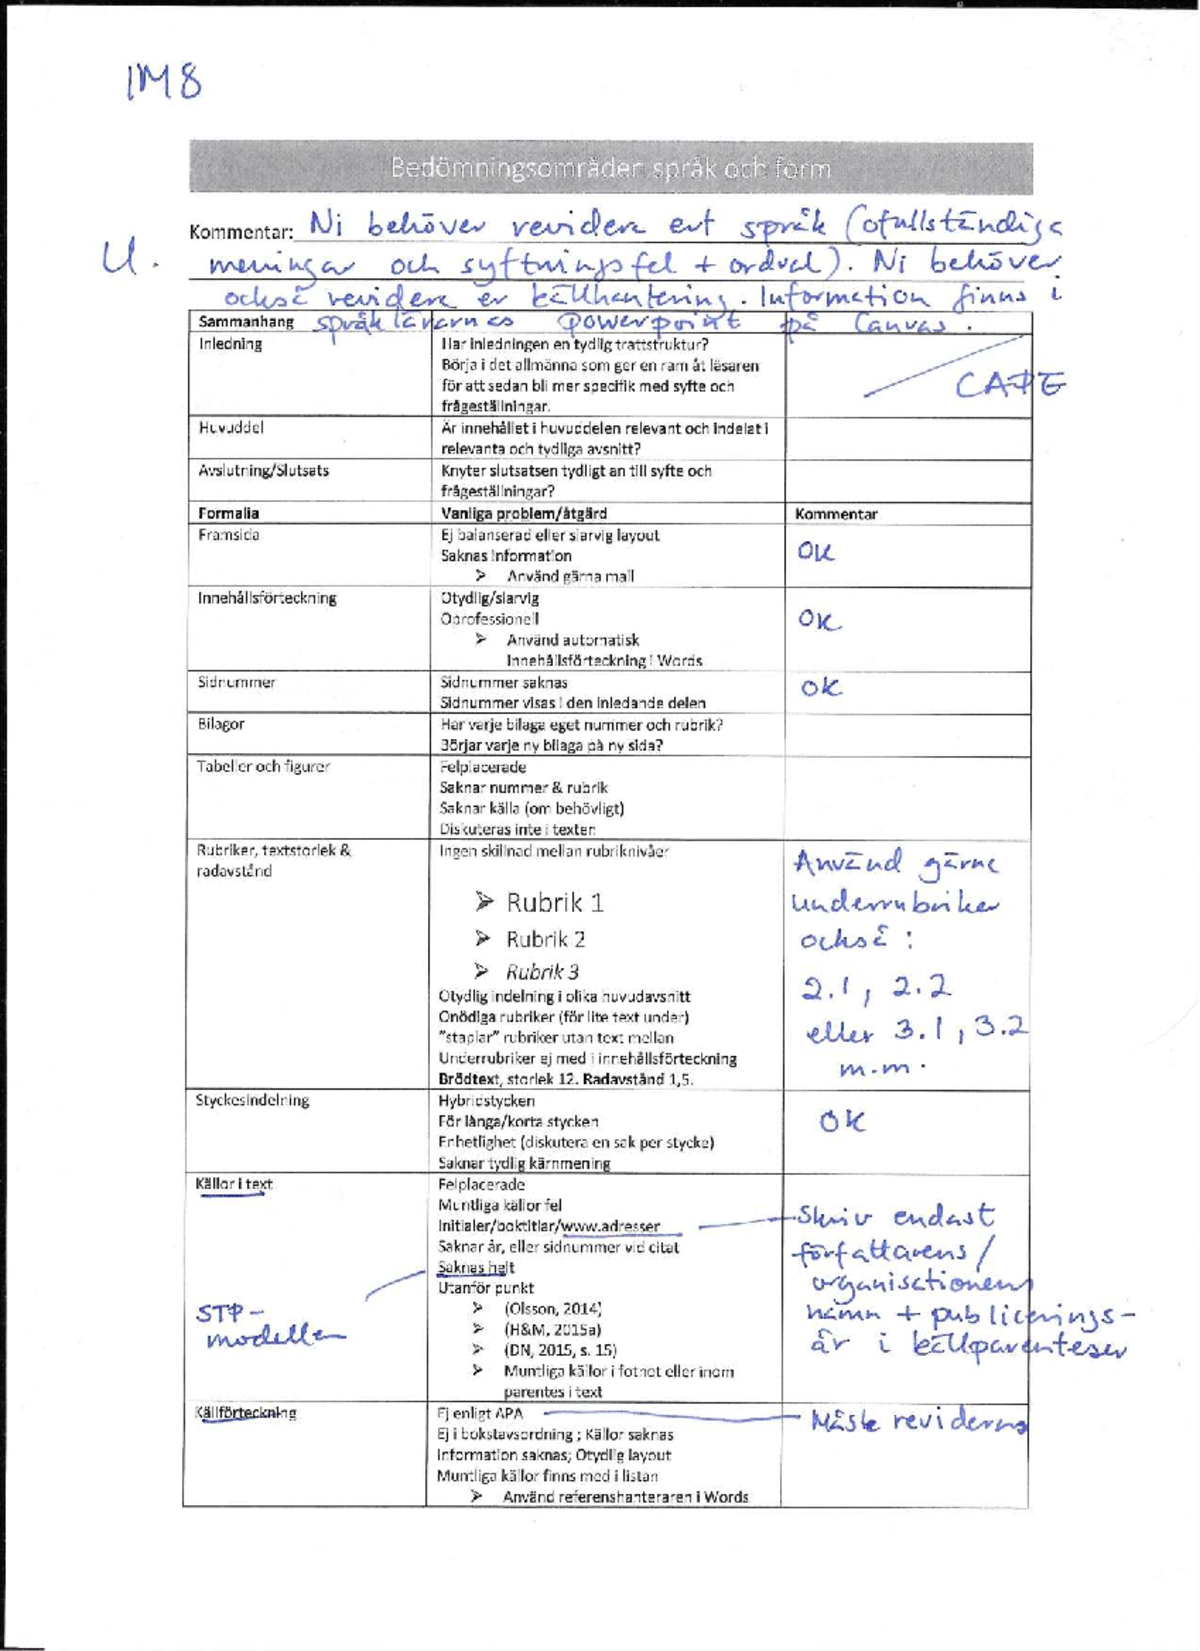 1M8
Bedömningsområden språk och form
Kommentar: Ni behöver revidera ert språk (ofullständiga
U. meningar och syftningsfel + ordval). Ni behöver
också revidera er källhantering. Information finns i
språklärarnas powerpoint på Canvas.
Sammanhang
Inledning
Har inledningen en tydlig trattstruktur?
Börja i det allmänna som ger en ram åt läsaren
för att sedan bli mer specifik med syfte och
frågeställningar.
Huvuddel
Är innehållet i huvuddelen relevant och indelat i
relevanta och tydliga avsnitt?
Avslutning/Slutsats
Knyter slutsatsen tydligt an till syfte och
frågeställningar?
Formalia Vanliga problem/åtgärd Kommentar
Framsida
Ej balanserad eller slarvig layout
Saknas information
➢ Använd gärna mall
OK
Innehållsförteckning
Otydlig/slarvig
Oprofessionell
➢ Använd automatisk
Innehållsförteckning i Words
OK
Sidnummer
Sidnummer saknas
Sidnummer visas i den inledande delen
OK
Bilagor
Har varje bilaga eget nummer och rubrik?
Börjar varje ny bilaga på ny sida?
Tabeller och figurer
Felplacerade
Saknar nummer & rubrik
Saknar källa (om behövligt)
Diskuteras inte i texten
Rubriker, textstorlek &
radavstånd
Ingen skillnad mellan rubriknivåer
➢ Rubrik 1
➢ Rubrik 2
➢ Rubrik 3
Otydlig indelning i olika huvudavsnitt
Onödiga rubriker (för lite text under)
"staplar" rubriker utan text mellan
Underrubriker ej med i innehållsförteckning
Brödtext, storlek 12. Radavstånd 1,5.
Använd gärna
underrubriker
också :
2.1, 2.2
eller 3.1, 3.2
m.m.
Styckesindelning
Hybridstycken
För långa/korta stycken
Enhetlighet (diskutera en sak per stycke)
Saknar tydlig kärnmening
OK
Källor i text
STP-
modellen
Felplacerade
Muntliga källor fel
Initialer/boktitlar/www.adresser
Saknar år, eller sidnummer vid citat
Saknas helt
Utanför punkt
➢ (Olsson, 2014)
➢ (H&M, 2015a)
➢ (DN, 2015, s. 15)
➢ Muntliga källor i fotnot eller inom
parentes i text
Skriv endast
författarens/
organisationens
namn + publicerings-
år i källparenteser
Källförteckning
Ej enligt APA
Ej i bokstavsordning ; Källor saknas
Information saknas; Otydlig layout
Muntliga källor finns med i listan
➢ Använd referenshanteraren i Words
Måste revideras